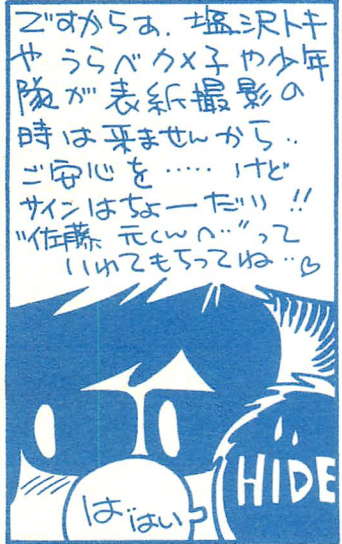 ですからぁ、塩沢トキ
や うらべカメ子や少年
隊が表紙撮影の
時は来ませんから‥
ご安心を‥‥‥ けど
サインはちょーだい!!
"佐藤 元くんへ‥"って
いれてもらってね‥♡
HIDE
はⅰはい